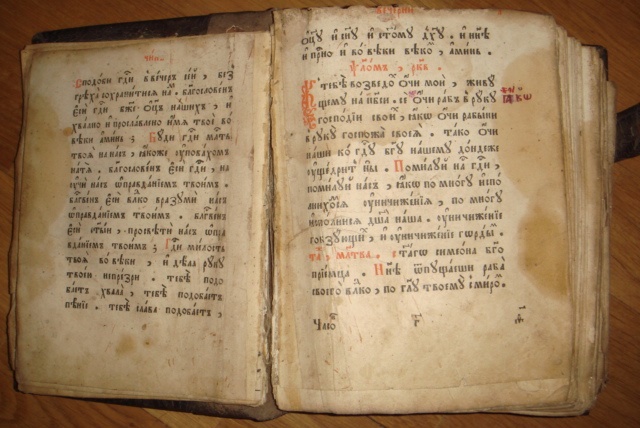 чин
Сподоби гдⷭ҇и в вечеръ сїй , без̾
грѣха сохранитисѧ на́мъ . благословенъ
еси гдⷭ҇и бж҃е оц҃ъ нашихъ , и
хвално и прославлено имѧ твое во
вѣки аминь . Буди гдⷭ҇и млⷭ҇ть
твоѧ на насъ , ꙗкоже ѹповахомъ
на тѧ . благословенъ еси гдⷭ҇и , на
ѹчи насъ ѡправданїемъ твоимъ .
блгⷭ҇венъ еси влⷣко вразуми насъ
ѡправданїемъ твоимъ . блгⷭ҇венъ
еси ст҃ыи , просвѣти насъ ѡпра
вданїемъ твоимъ . гдⷭ҇и милость
твоѧ во вѣки , и дѣла руку
твоєю не презри . тебѣ подо
баетъ хвала , тебѣ подобаетъ
пѣнїе . тебѣ слава подобаетъ ,
вечерни
оц҃у и сн҃у и ст҃ому дх҃у . и нн҃ѣ
и прⷭ҇но и во вѣки вѣкѡ , аминь .
ѱаломъ , рк҃в .
К тебѣ возведⷪ҇ очи мои , живу
щему на нб҃си . се ꙗкѡ очи рабъ в руку
господїи своиⷯ , ꙗкѡ очи рабыни
в руку госпожа своеѧ . тако очи
наши ко гдⷭ҇у бг҃у нашему дондеже
ѹщедритъ ны . Помилуй на гдⷭ҇и ,
помилуй насъ , ꙗкѡ по многу испо
лнихомсѧ ѹничиженїѧ , по многу
исполнисѧ дш҃а наша . ѹничиженїе
гобзующиⷯ , и ѹничиженїе гордыⷯ .
та , млт҃ва . ст҃агѡ симеона бг҃о
прїемца . Нн҃ѣ ѿпущаеши раба
своего влⷣко , по гл҃у твоему с миромъ .
Часоⷡ҇ г҃